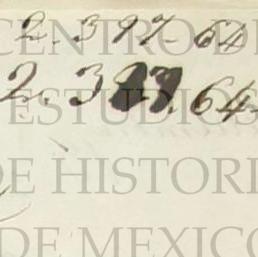 2.397.64
2.3 .64
CENTRO DE
ESTUDIOS
DE HISTORI
DE MEXICO